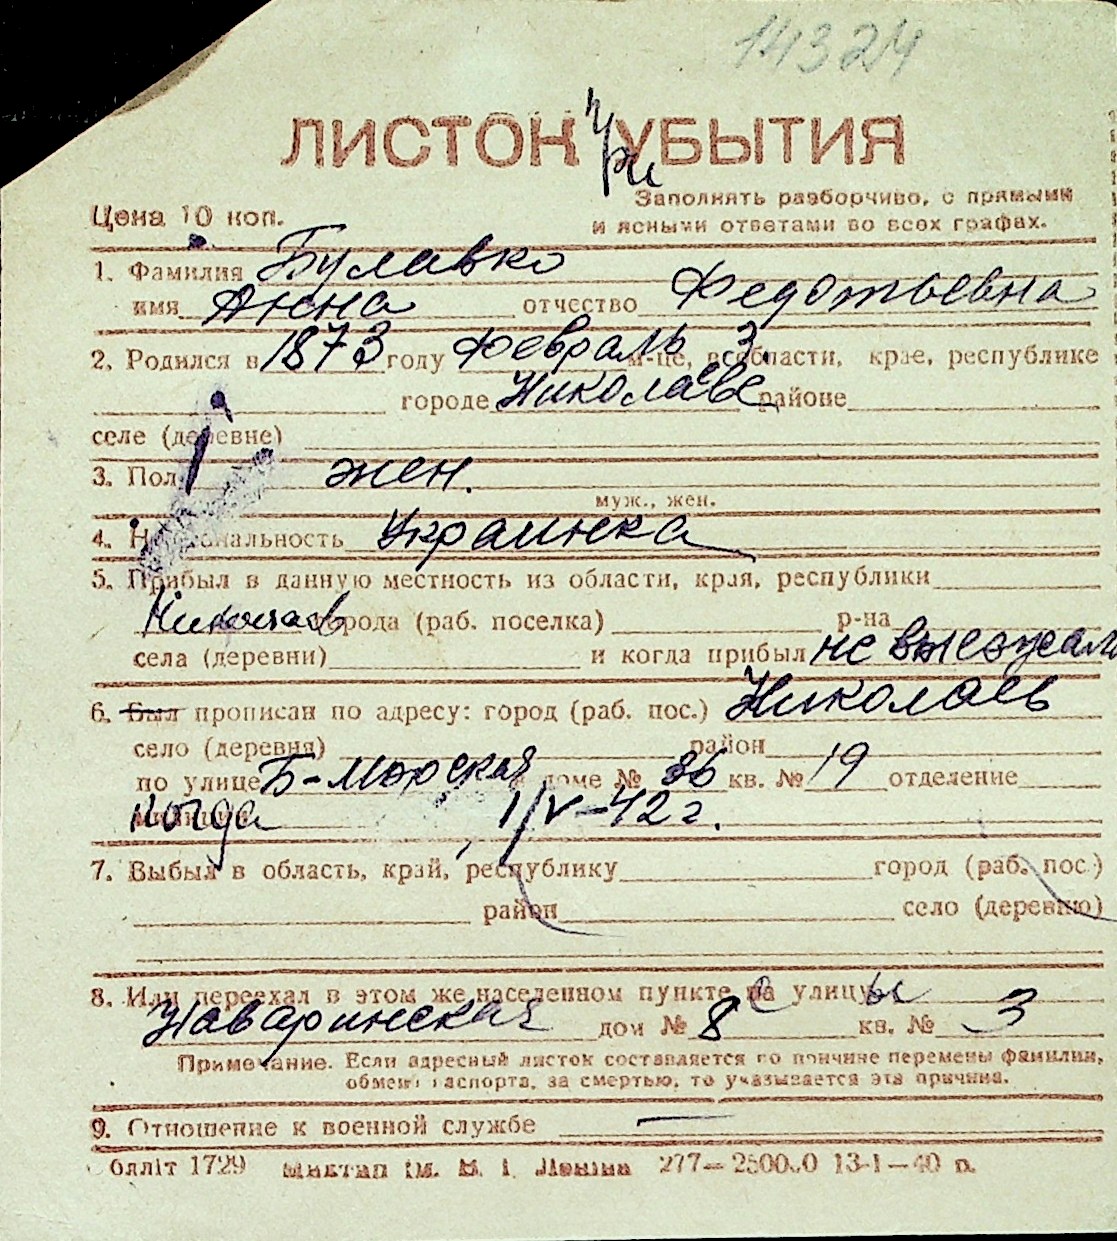 14324
ЛИСТОК УБЫТИЯ
При
Заполнять разборчиво, с прямыми
Цена 10 коп.
и ясными ответами во всех графах.
1. Фамилия Булавко
имя Анна отчество Федотьевна
2. Родился в 1873 году февраль 3. м-це, в области, крае, республике
городе Николаеве районе
селе (деревне)
3. Пол жен.
муж., жен.
4. Национальность Украинка
5. Прибыл в данную местность из области, края, республики
Николаев города (раб. поселка) р-на
села (деревни) и когда прибыл не выезжала
6. Был прописан по адресу: город (раб. пос.) Николаев
село (деревня) район
по улице Б-Морская доме № 36 кв. № 19 отделение
милиции когда 1/V-42 г.
7. Выбыл в область, край, республику город (раб. пос.)
район село (деревню)
8. Или переехал в этом же населенном пункте на улицу с ы
Наваринская дом № 8 кв. № 3
Примечание. Если адресный листок составляется по причине перемены фамилии,
обмена паспорта, за смертью, то указывается эта причина.
9. Отношение к военной службе —
блліт 1729 ім. В. І. Леніна 277—250000 13-I—40 р.